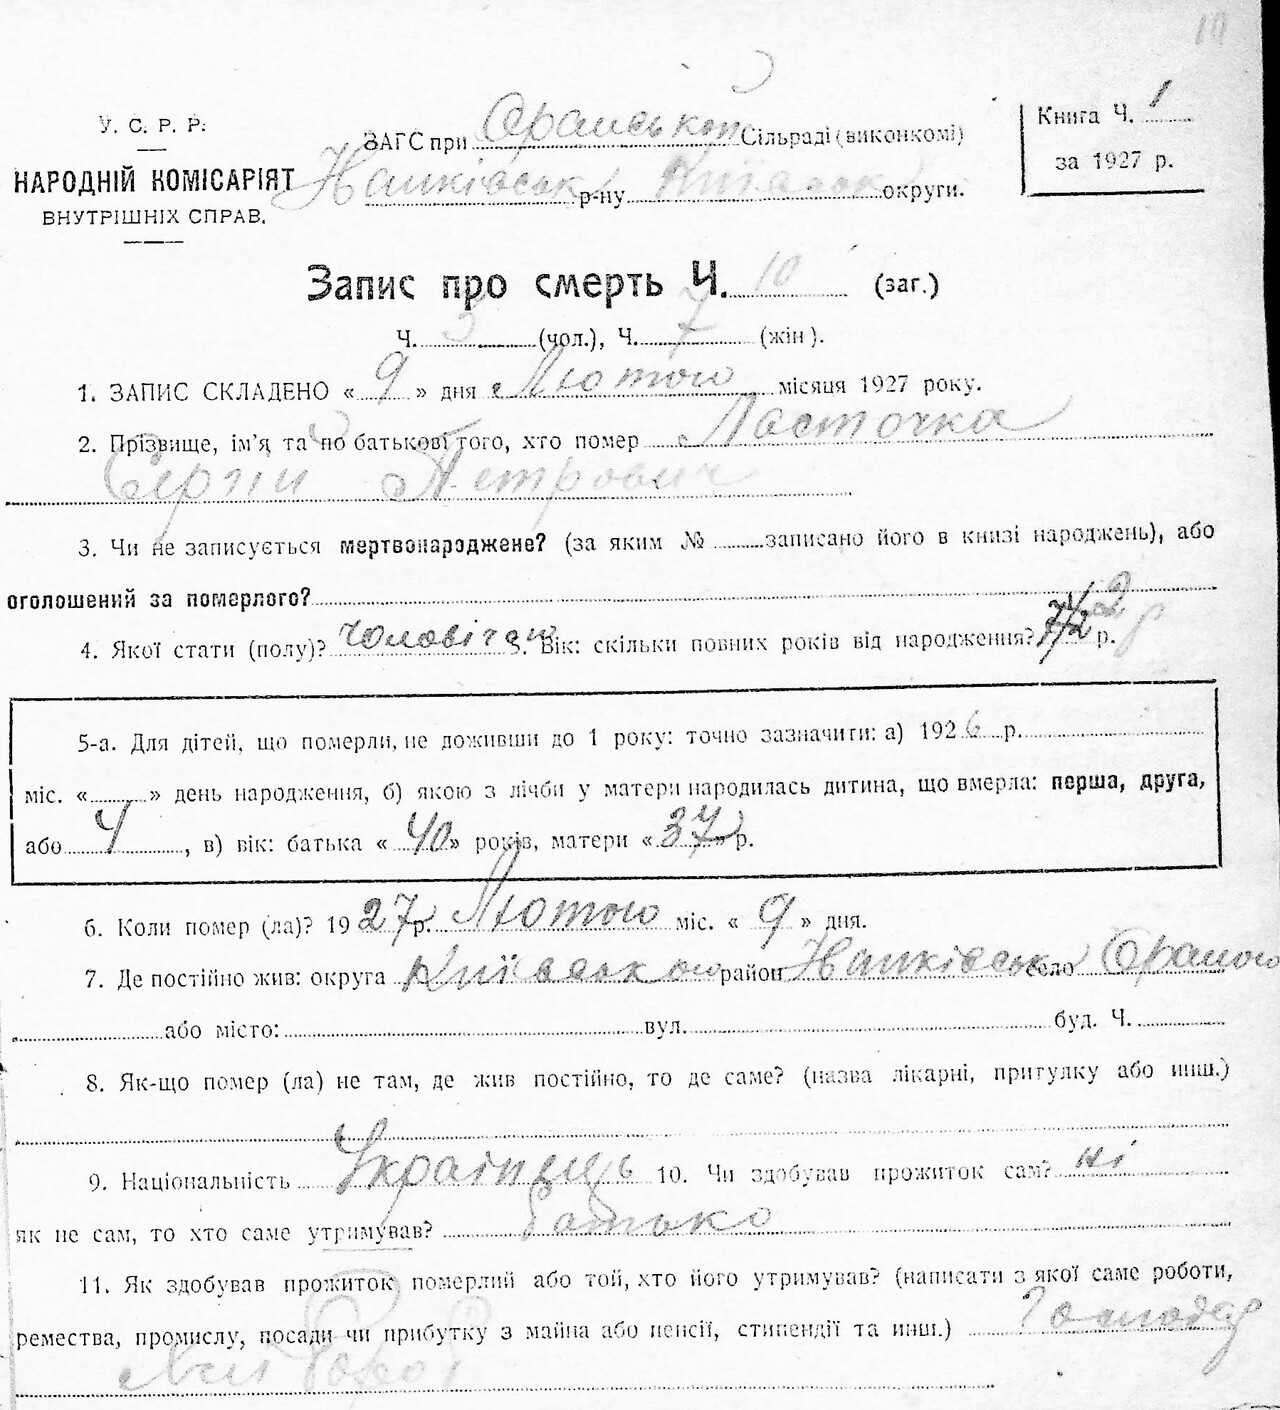 10
У. С. Р. Р.
НАРОДНІЙ КОМІСАРІЯТ
ВНУТРІШНІХ СПРАВ.
ЗАГС при Оранській Сільраді (виконкомі)
р-ну Київськ округи.
Книга Ч. 1
за 1927 р.
Запис про смерть Ч. 10 (заг.)
Ч. 3 (чол.), Ч. 7 (жін).
1. ЗАПИС СКЛАДЕНО « 9 » дня Лютого місяця 1927 року.
2. Прізвище, ім'я та по батькові того, хто помер Ласточка
Сергій Петрович
3. Чи не записується мертвонароджене? (за яким № записано його в книзі народжень), або
оголошений за померлого?
4. Якої стати (полу)? чоловічої 5. Вік: скільки повних років від народження? р.
5-а. Для дітей, що померли, не доживши до 1 року: точно зазначити: а) 1926 р.
міс. « » день народження, б) якою з лічби у матери народилась дитина, що вмерла: перша, друга,
або 4, в) вік: батька « 40 » років, матери « 37 » р.
6. Коли помер (ла)? 1927 р. Лютого міс. « 9 » дня.
7. Де постійно жив: округа Київської район село Ораного
або місто: вул. буд. Ч.
8. Як-що помер (ла) не там, де жив постійно, то де саме? (назва лікарні, притулку або инш.)
9. Національність Українець 10. Чи здобував прожиток сам? ні
як не сам, то хто саме утримував? батько
11. Як здобував прожиток померлий або той, хто його утримував? (написати з якої саме роботи,
ремества, промислу, посади чи прибутку з майна або пенсії, стипендії та инш.) Господар